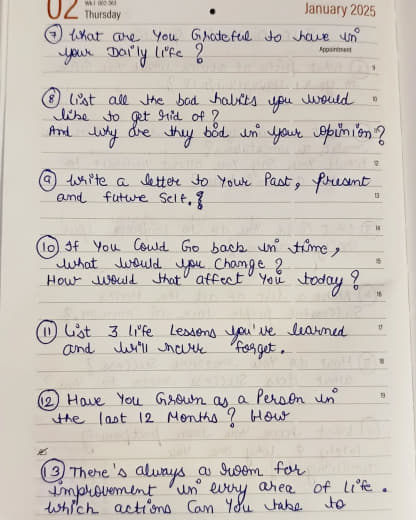 02
Thursday
January 2025
Appointment
⑦ What are You Grateful to have in
your Daily life ?
9
⑧ List all the bad habits you would
10
like to get rid of ?
And why are they bad in your opinion?
12
⑨ Write a letter to Your Past, Present
and future Self.
13
14
⑩ If You Could Go back in time,
what would you Change ?
15
How would that affect You today ?
16
⑪ List 3 life Lessons you've learned
17
and will never forget.
18
⑫ Have You Grown as a Person in
19
the last 12 Months ? How
⑬ There's always a room for
improvement in every area of life .
Which actions Can You take to